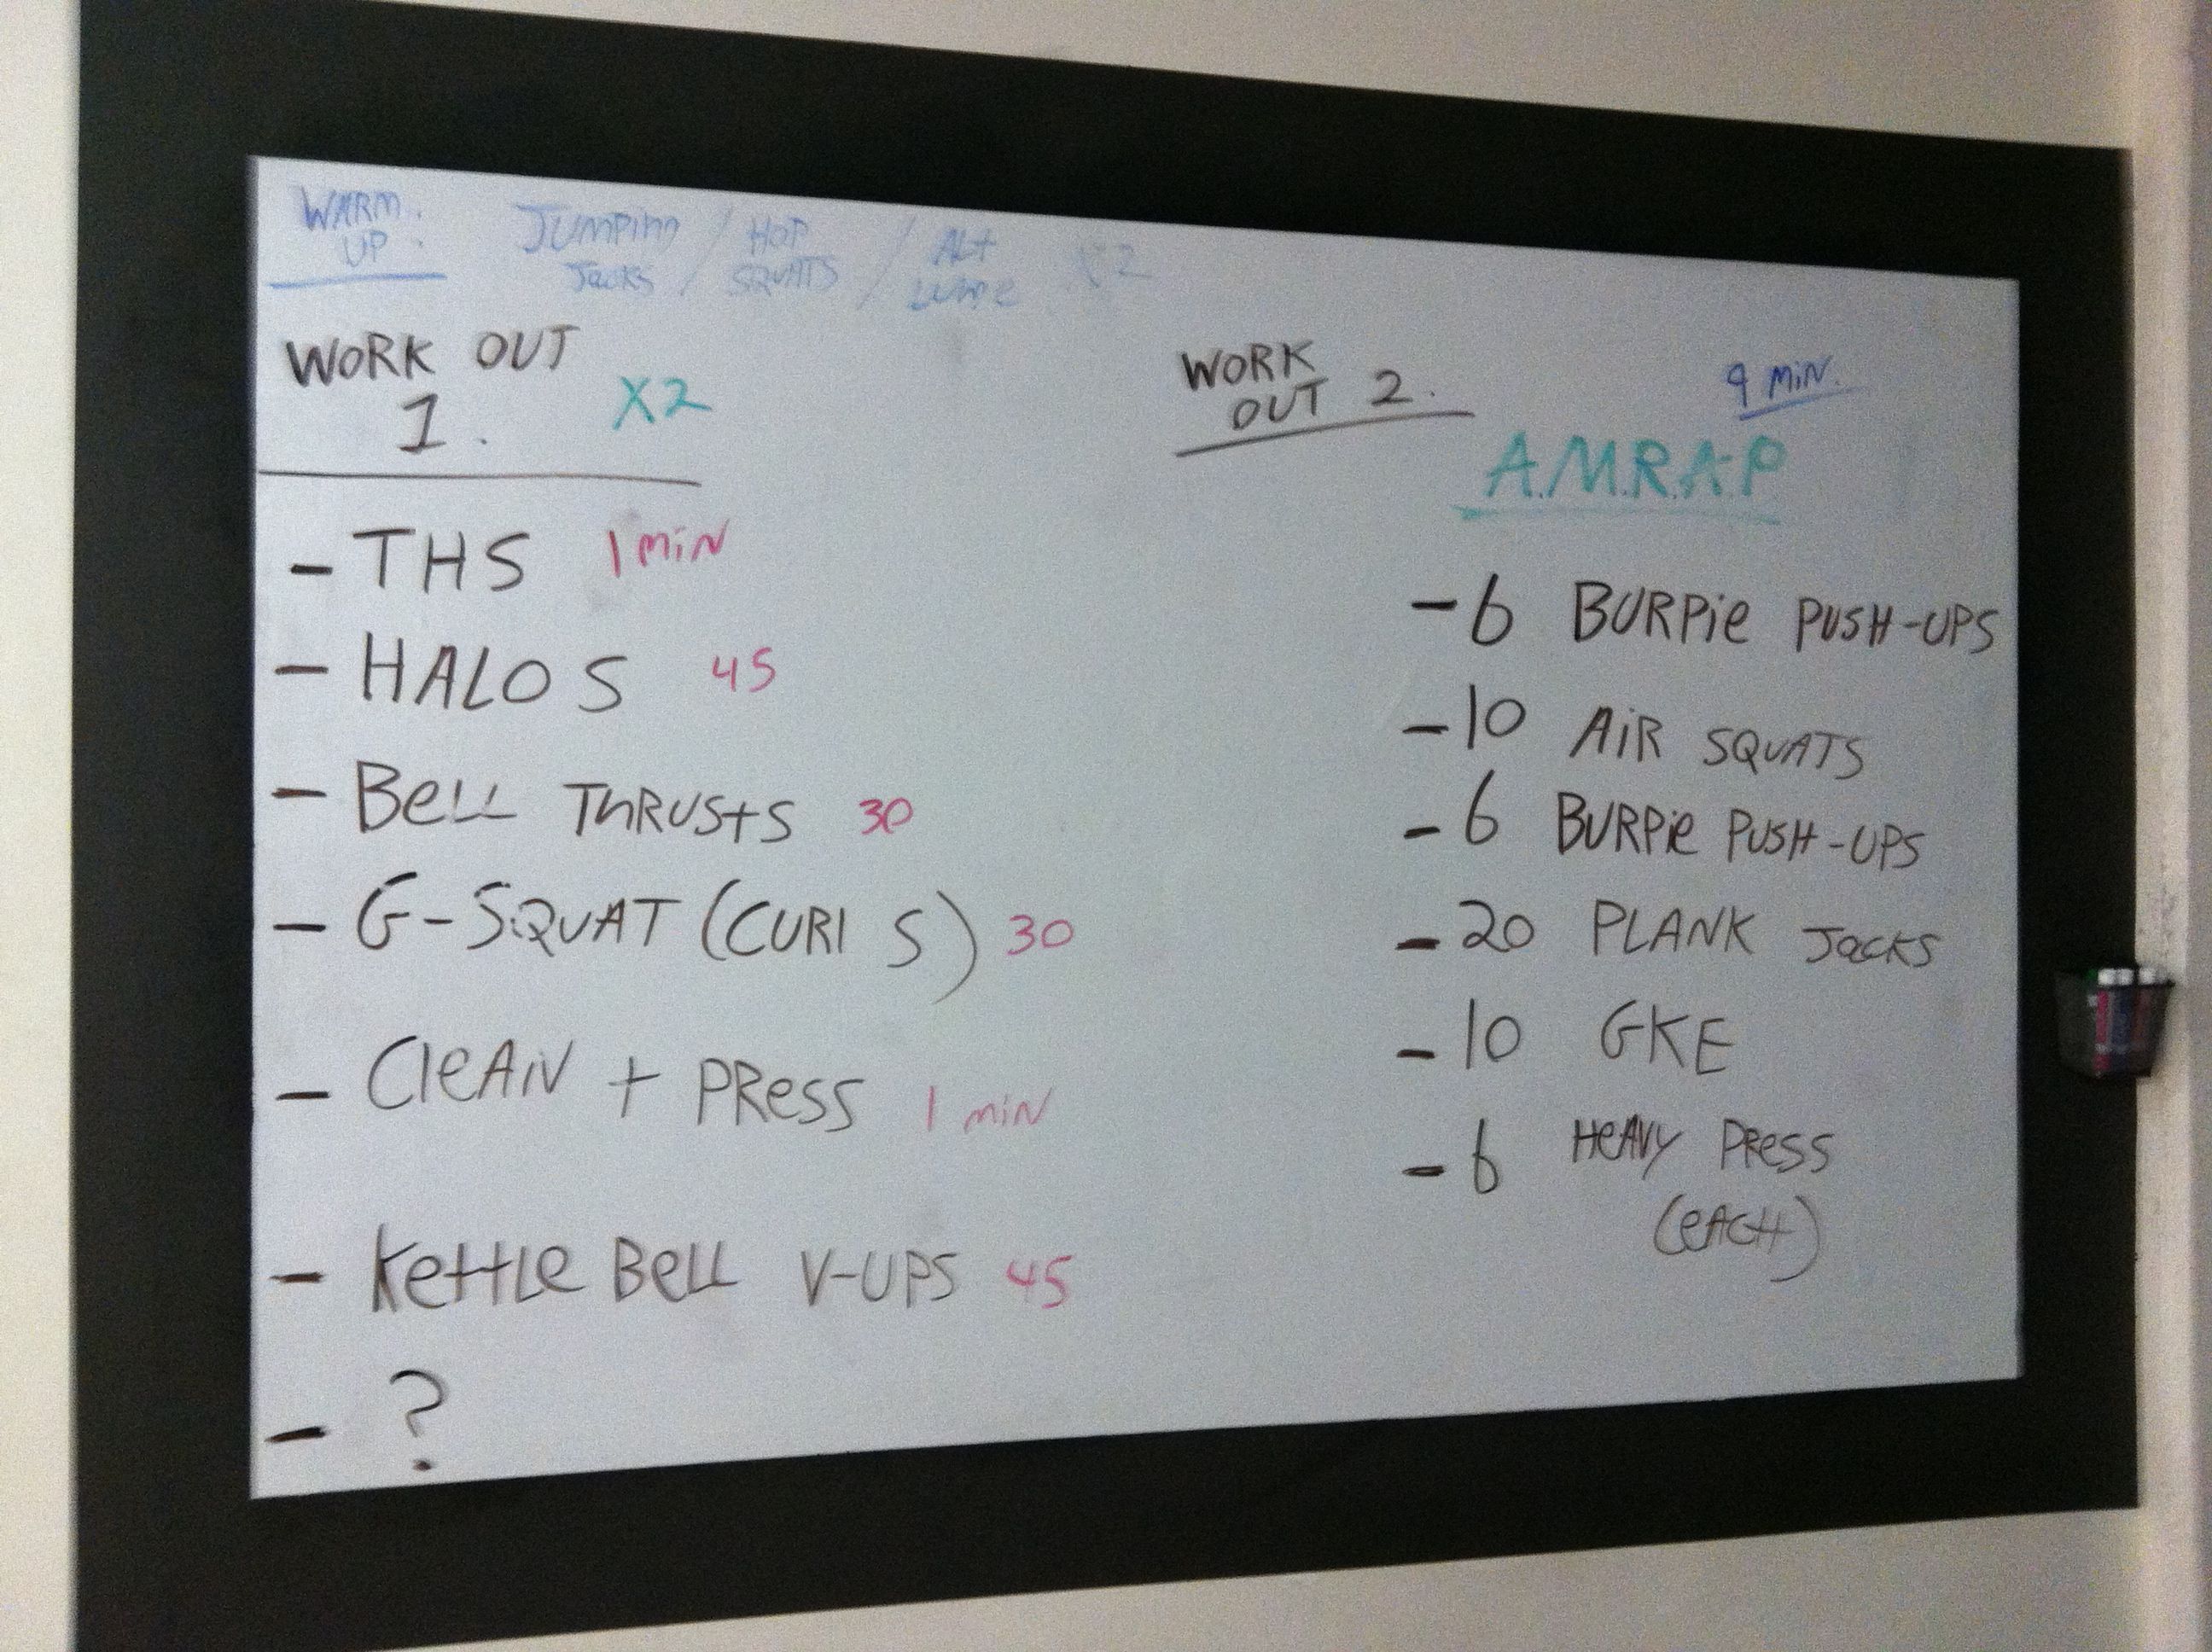 WARM UP. JUMPing Jacks / HOP SQUATS / ALt LUNGe X2
WORK OUT 1. X2
- THS 1 MiN
- HALOS 45
- BeLL THRUStS 30
- G-SQUAT (CURl S) 30
- CleAN + PRess 1 miN
- KettLe BeLL V-UPS 45
- ?
WORK OUT 2. 9 MiN.
A.M.R.A.P
- 6 BURPie PUSH-UPS
- 10 AiR SQUATS
- 6 BURPie PUSH-UPS
- 20 PLANK JacKS
- 10 GKE
- 6 HeAVY PResS
(eACH)